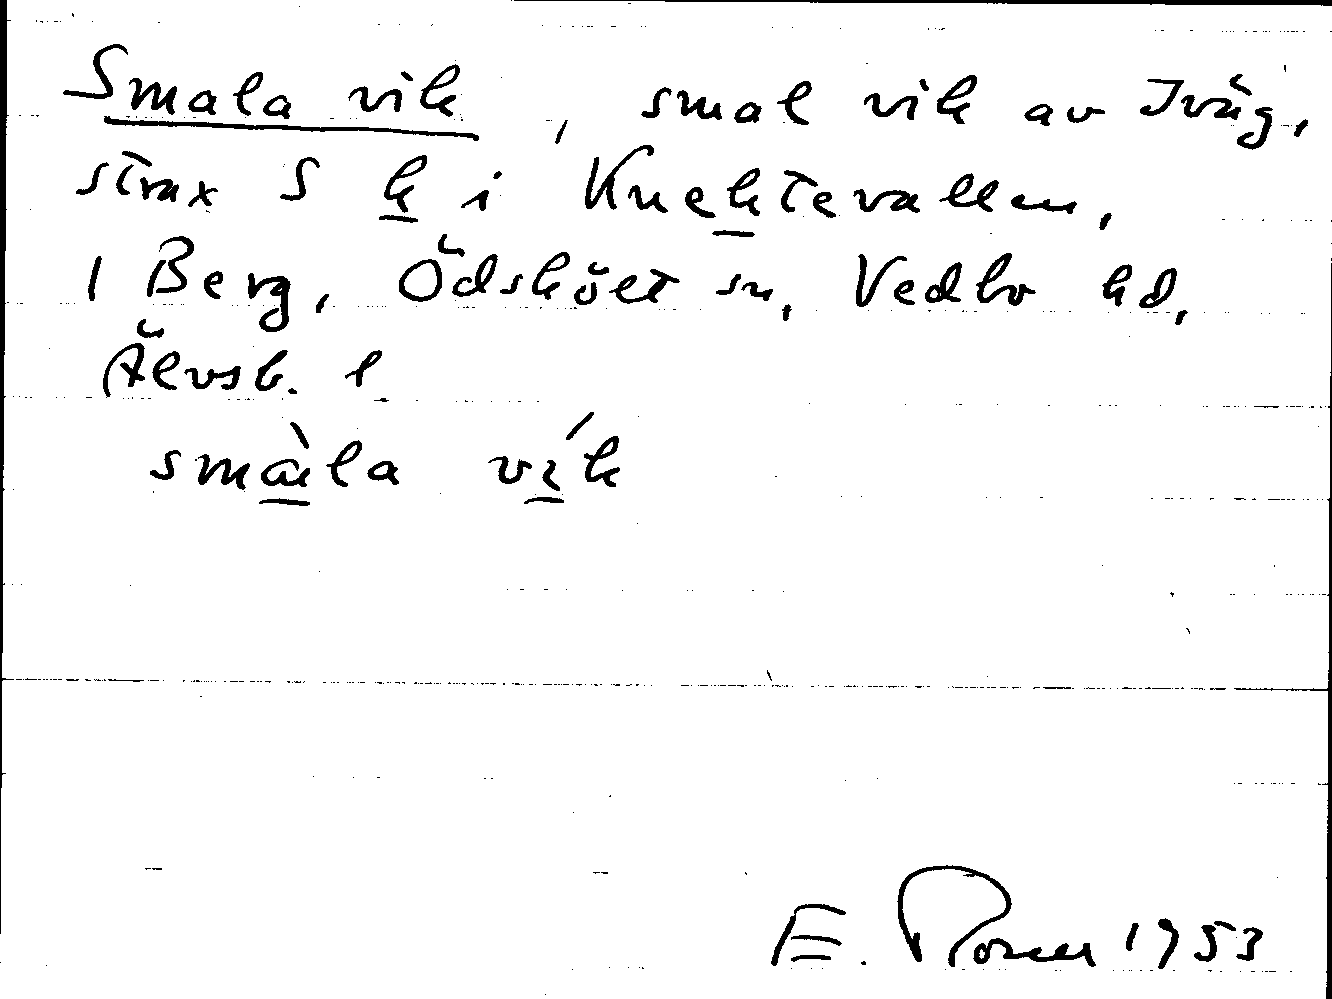 Smala vik, smal vik av Iväg,
strax S k i Knektevallen,
1 Berg, Ödsköлt sn, Vedbo hd,
Älvsb. l
smàla vík
E. 1953